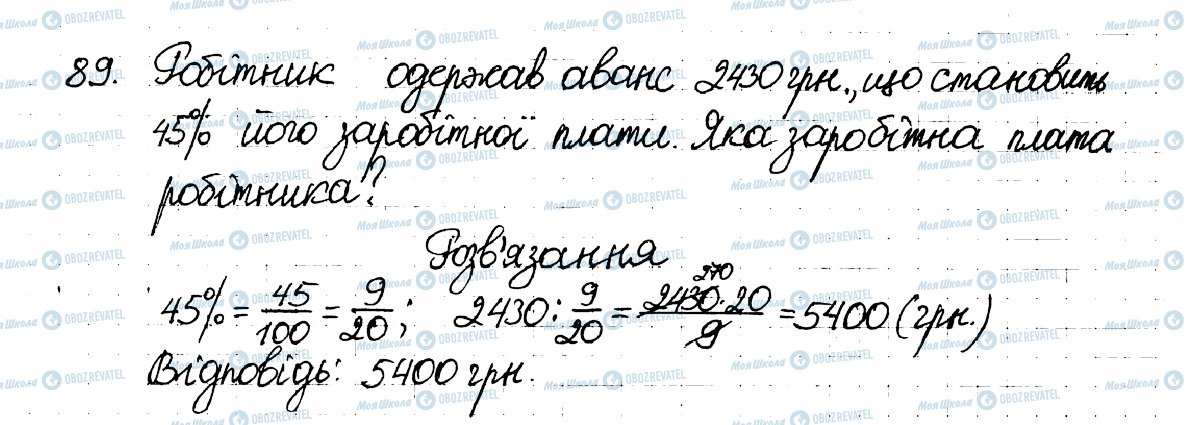 89. Робітник одержав аванс 2430 грн., що становить
45% його заробітної плати. Яка заробітна плата
робітника?
Розв'язання
45% = 45/100 = 9/20; 2430 : 9/20 = 2430·20/9 = 5400 (грн.)
270
Відповідь: 5400 грн.
Моя Школа OBOZREVATEL